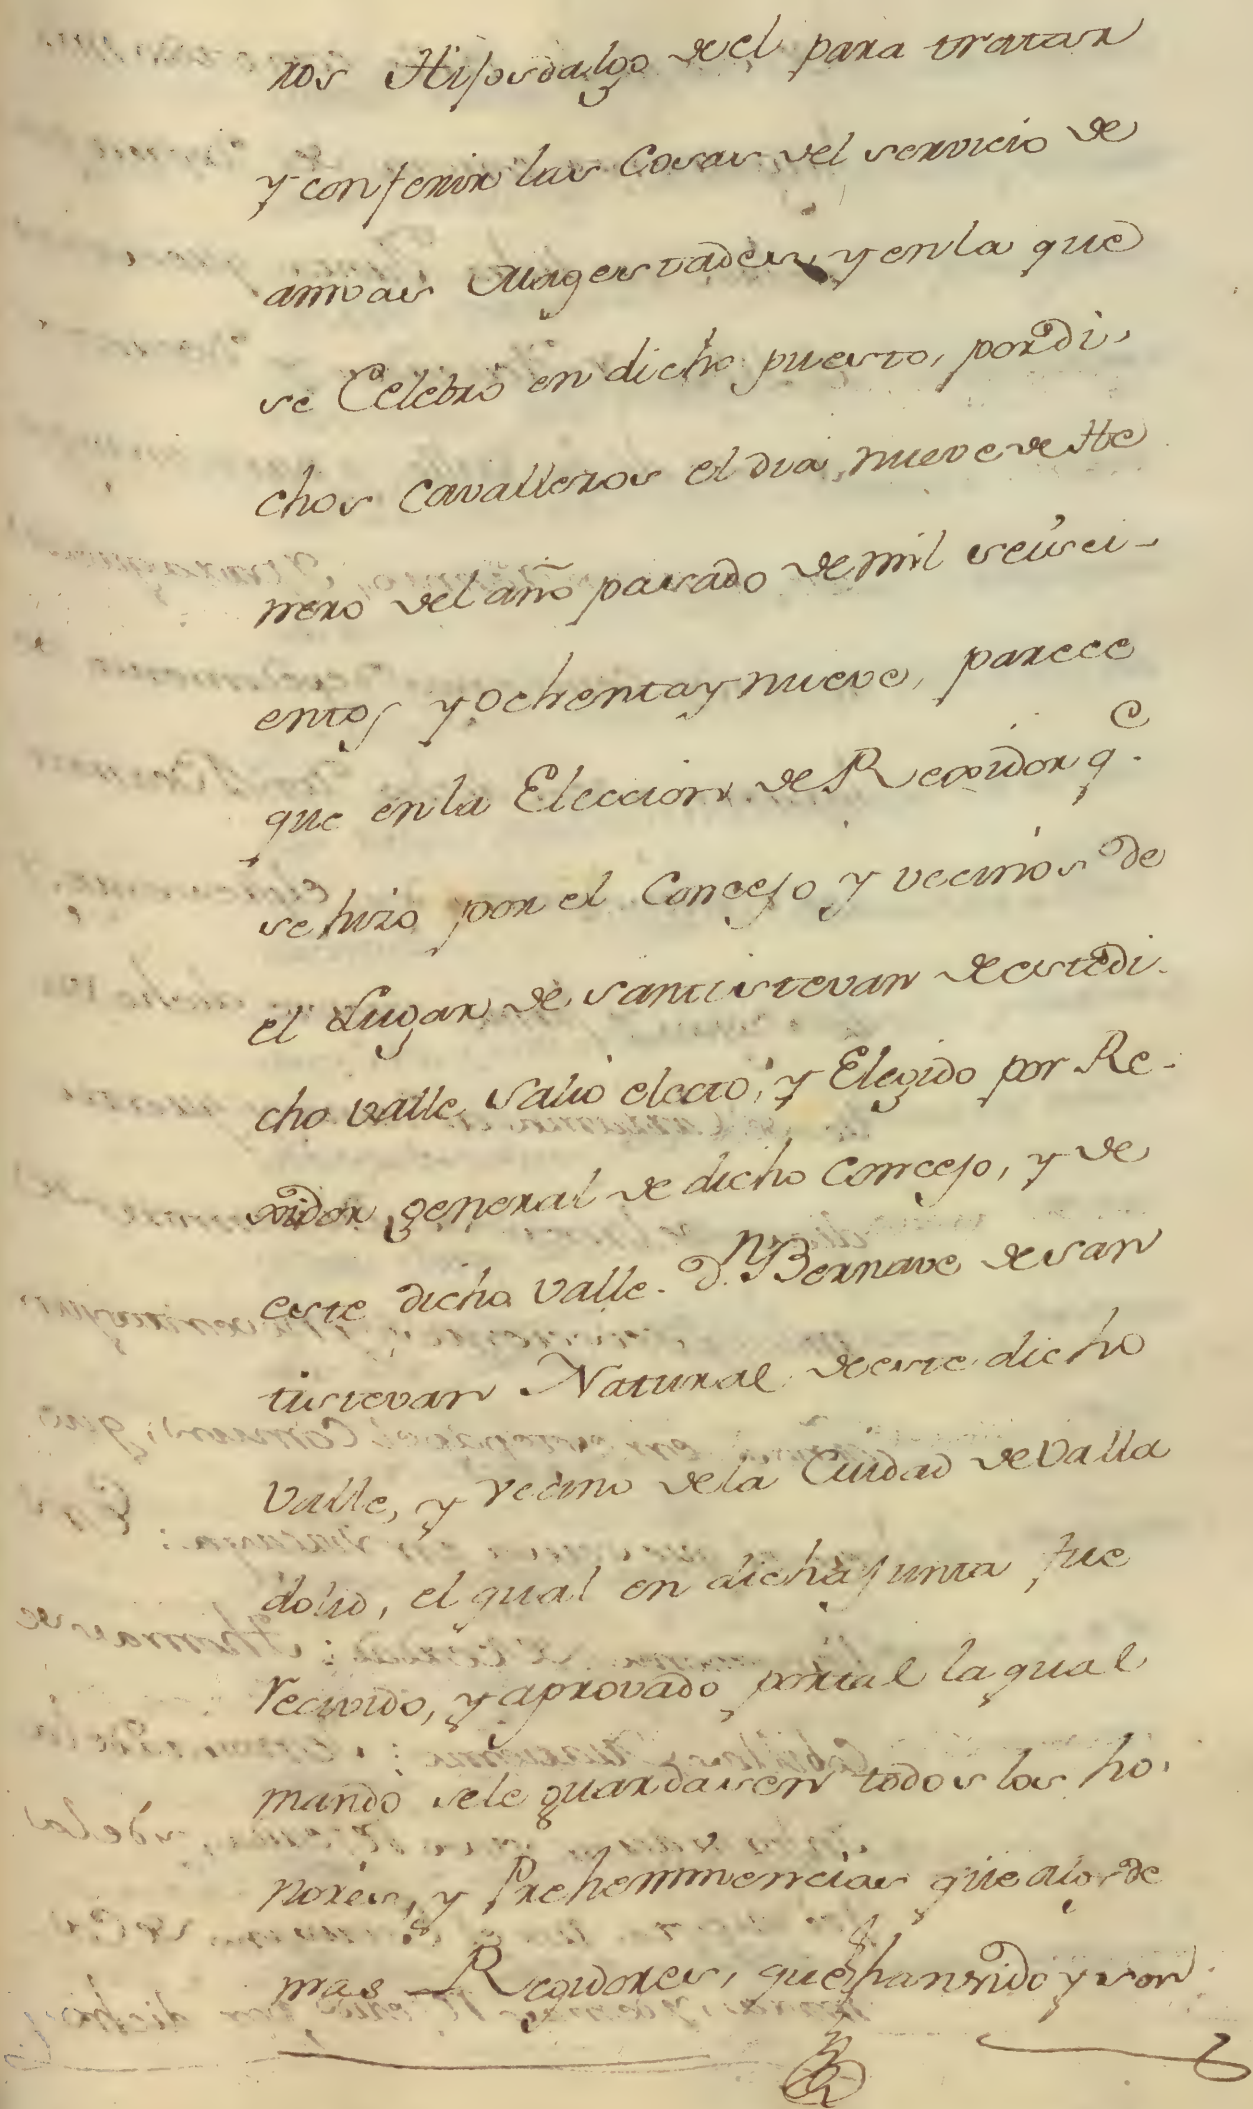 ros Hijosdalgo de el para tratar
y conferir las Cosas del servicio de
ambas Magestades, y en la que
se Celebro en dicho puesto, por di-
chos Cavalleros el dia nueve de He
nero del año passado de mil seisci-
entos y ochenta y nueve, parece
que en la Eleccion de Rexidor q.e
se hizo por el Concejo y vecinos de
el Lugar de Santistevan de este di-
cho valle, Salio electo, y Elegido por Re-
xidor general de dicho Concejo, y de
este dicho Valle. D.n Bernave de San
tistevan Natural de este dicho
Valle, y vecino de la Ciudad de Valla
dolid, el qual en dicha junta fue
recivido, y aprovado por tal la qual
mando se le guardasen todos los ho-
nores, y Prehemmencias que a los de
mas Regidores, que han sido y son